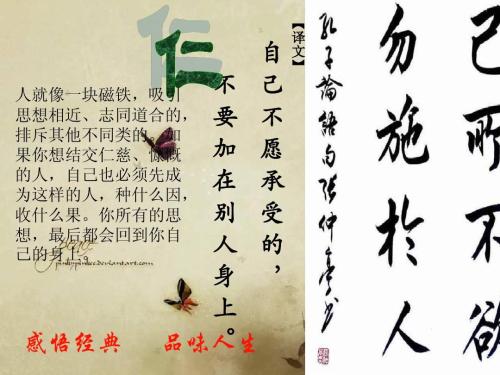 己所不欲
勿施於人
孔子論語句張仲书
【译文】
自己不愿承受的，
不要加在别人身上。
仁
人就像一块磁铁，吸引
思想相近、志同道合的，
排斥其他不同类的。如
果你想结交仁慈、慷慨
的人，自己也必须先成
为这样的人，种什么因，
收什么果。你所有的思
想，最后都会回到你自
己的身上。
感悟经典 品味人生